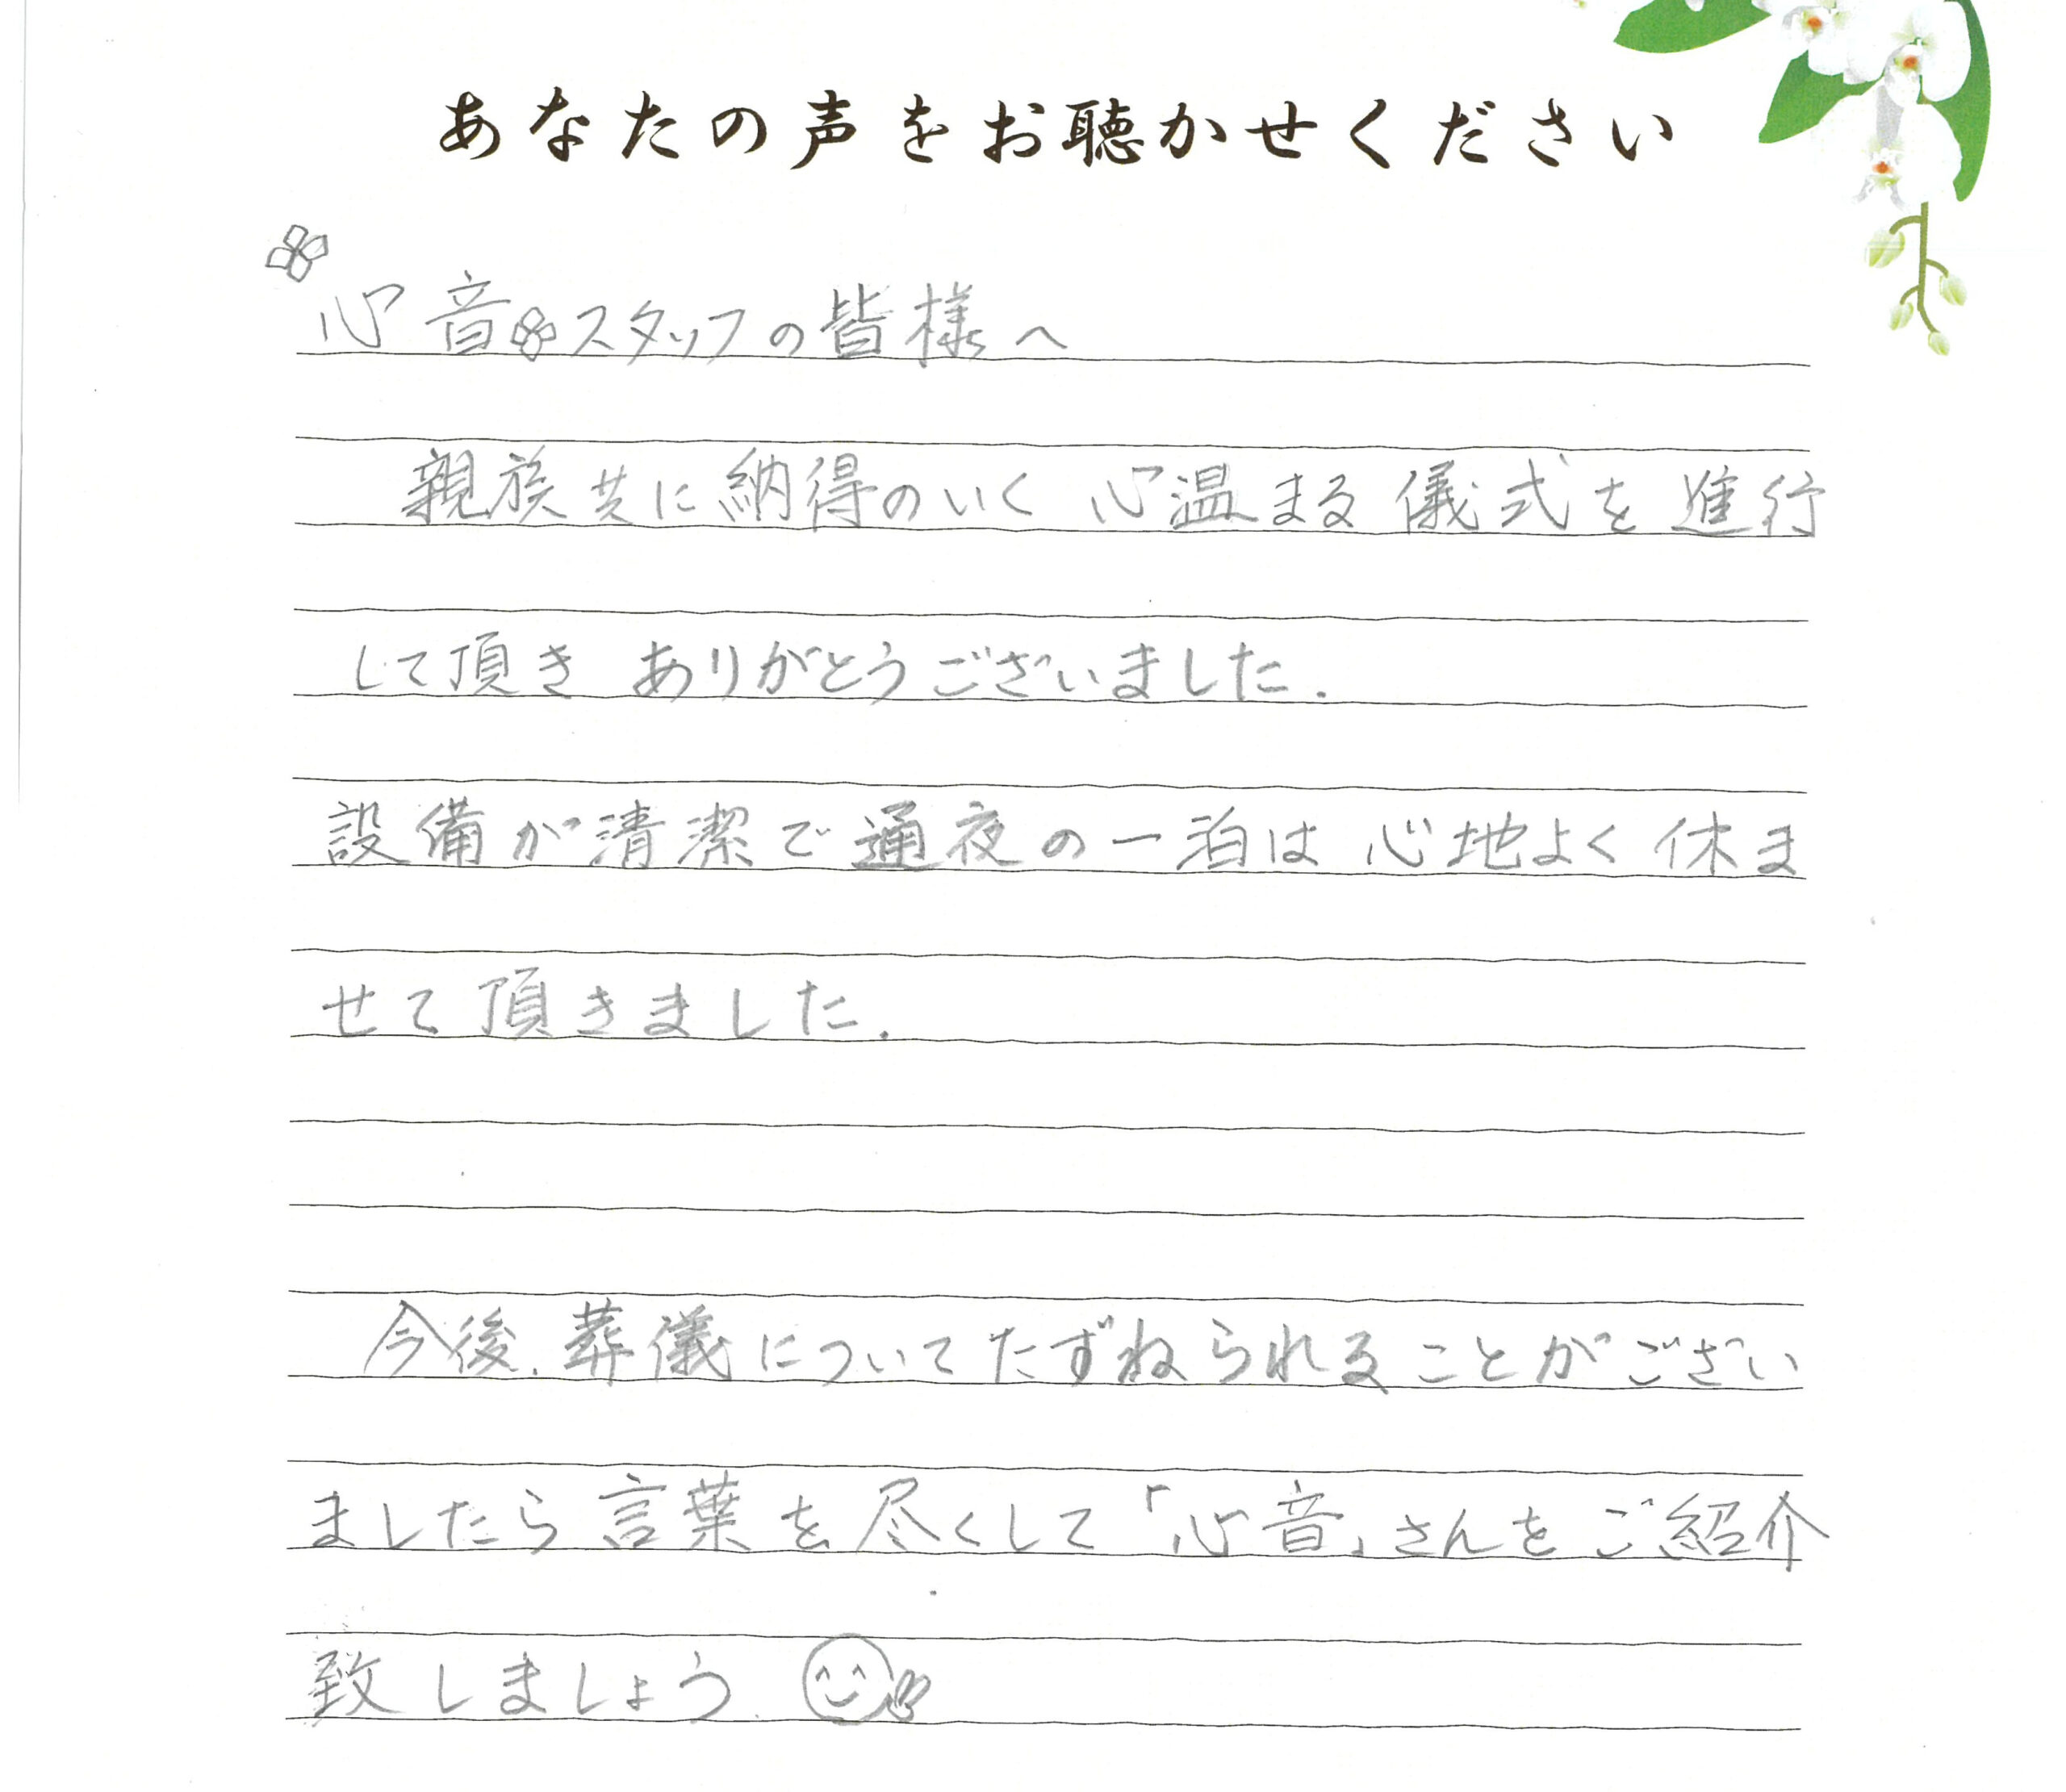 あなたの声をお聴かせください
心音スタッフの皆様へ
親族共に納得のいく 心温まる儀式を進行
して頂き ありがとうございました.
設備が清潔で通夜の一泊は 心地よく休ま
せて頂きました.
今後、葬儀についてたずねられることがござい
ましたら言葉を尽くして「心音」さんをご紹介
致しましょう.